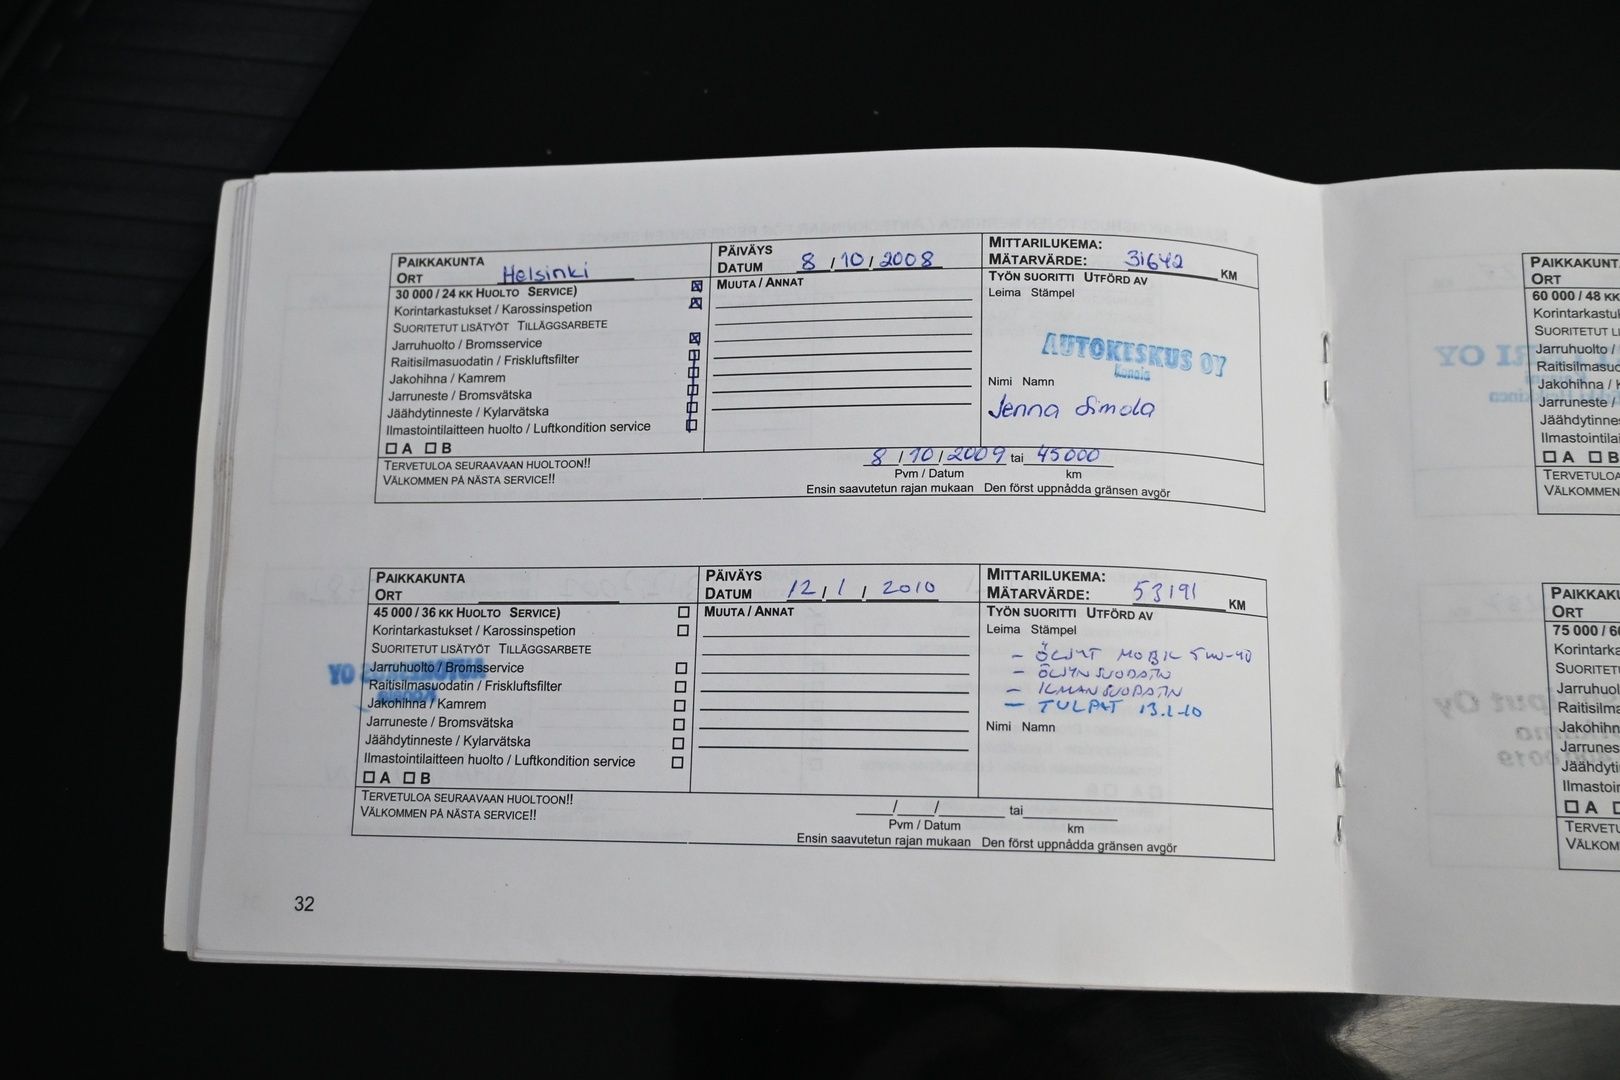 PAIKKAKUNTA
ORT Helsinki
PÄIVÄYS
DATUM 8 / 10 / 2008
MITTARILUKEMA:
MÄTARVÄRDE: 31642 KM
30 000 / 24 KK HUOLTO SERVICE)
Korintarkastukset / Karossinspetion
SUORITETUT LISÄTYÖT TILLÄGGSARBETE
Jarruhuolto / Bromsservice
Raitisilmasuodatin / Friskluftsfilter
Jakohihna / Kamrem
Jarruneste / Bromsvätska
Jäähdytinneste / Kylarvätska
Ilmastointilaitteen huolto / Luftkondition service
A B
MUUTA / ANNAT
TYÖN SUORITTI UTFÖRD AV
Leima Stämpel
AUTOKESKUS OY
Konala
Nimi Namn
Jenna Simola
TERVETULOA SEURAAVAAN HUOLTOON!!
VÄLKOMMEN PÅ NÄSTA SERVICE!!
8 / 10 / 2009 tai 45000
Pvm / Datum km
Ensin saavutetun rajan mukaan Den först uppnådda gränsen avgör
PAIKKAKUNTA
ORT
PÄIVÄYS
DATUM 12 / 1 / 2010
MITTARILUKEMA:
MÄTARVÄRDE: 53191 KM
45 000 / 36 KK HUOLTO SERVICE)
Korintarkastukset / Karossinspetion
SUORITETUT LISÄTYÖT TILLÄGGSARBETE
Jarruhuolto / Bromsservice
Raitisilmasuodatin / Friskluftsfilter
Jakohihna / Kamrem
Jarruneste / Bromsvätska
Jäähdytinneste / Kylarvätska
Ilmastointilaitteen huolto / Luftkondition service
A B
MUUTA / ANNAT
TYÖN SUORITTI UTFÖRD AV
Leima Stämpel
- ÖLJYT MOBIL 5W-40
- ÖLJYNSUODATIN
- ILMANSUODATIN
- TULPAT 13.1-10
Nimi Namn
TERVETULOA SEURAAVAAN HUOLTOON!!
VÄLKOMMEN PÅ NÄSTA SERVICE!!
/ / tai
Pvm / Datum km
Ensin saavutetun rajan mukaan Den först uppnådda gränsen avgör
32
PAIKKAKUNT
ORT
60 000 / 48 KK
Korintarkastu
SUORITETUT LI
Jarruhuolto /
Raitisilmasuo
Jakohihna /
Jarruneste /
Jäähdytinnes
Ilmastointilai
A B
TERVETULOA
VÄLKOMMEN
PAIKKAKU
ORT
75 000 / 6
Korintarka
SUORITET
Jarruhuol
Raitisilma
Jakohihn
Jarrunes
Jäähdyti
Ilmastoin
A
TERVETU
VÄLKOM